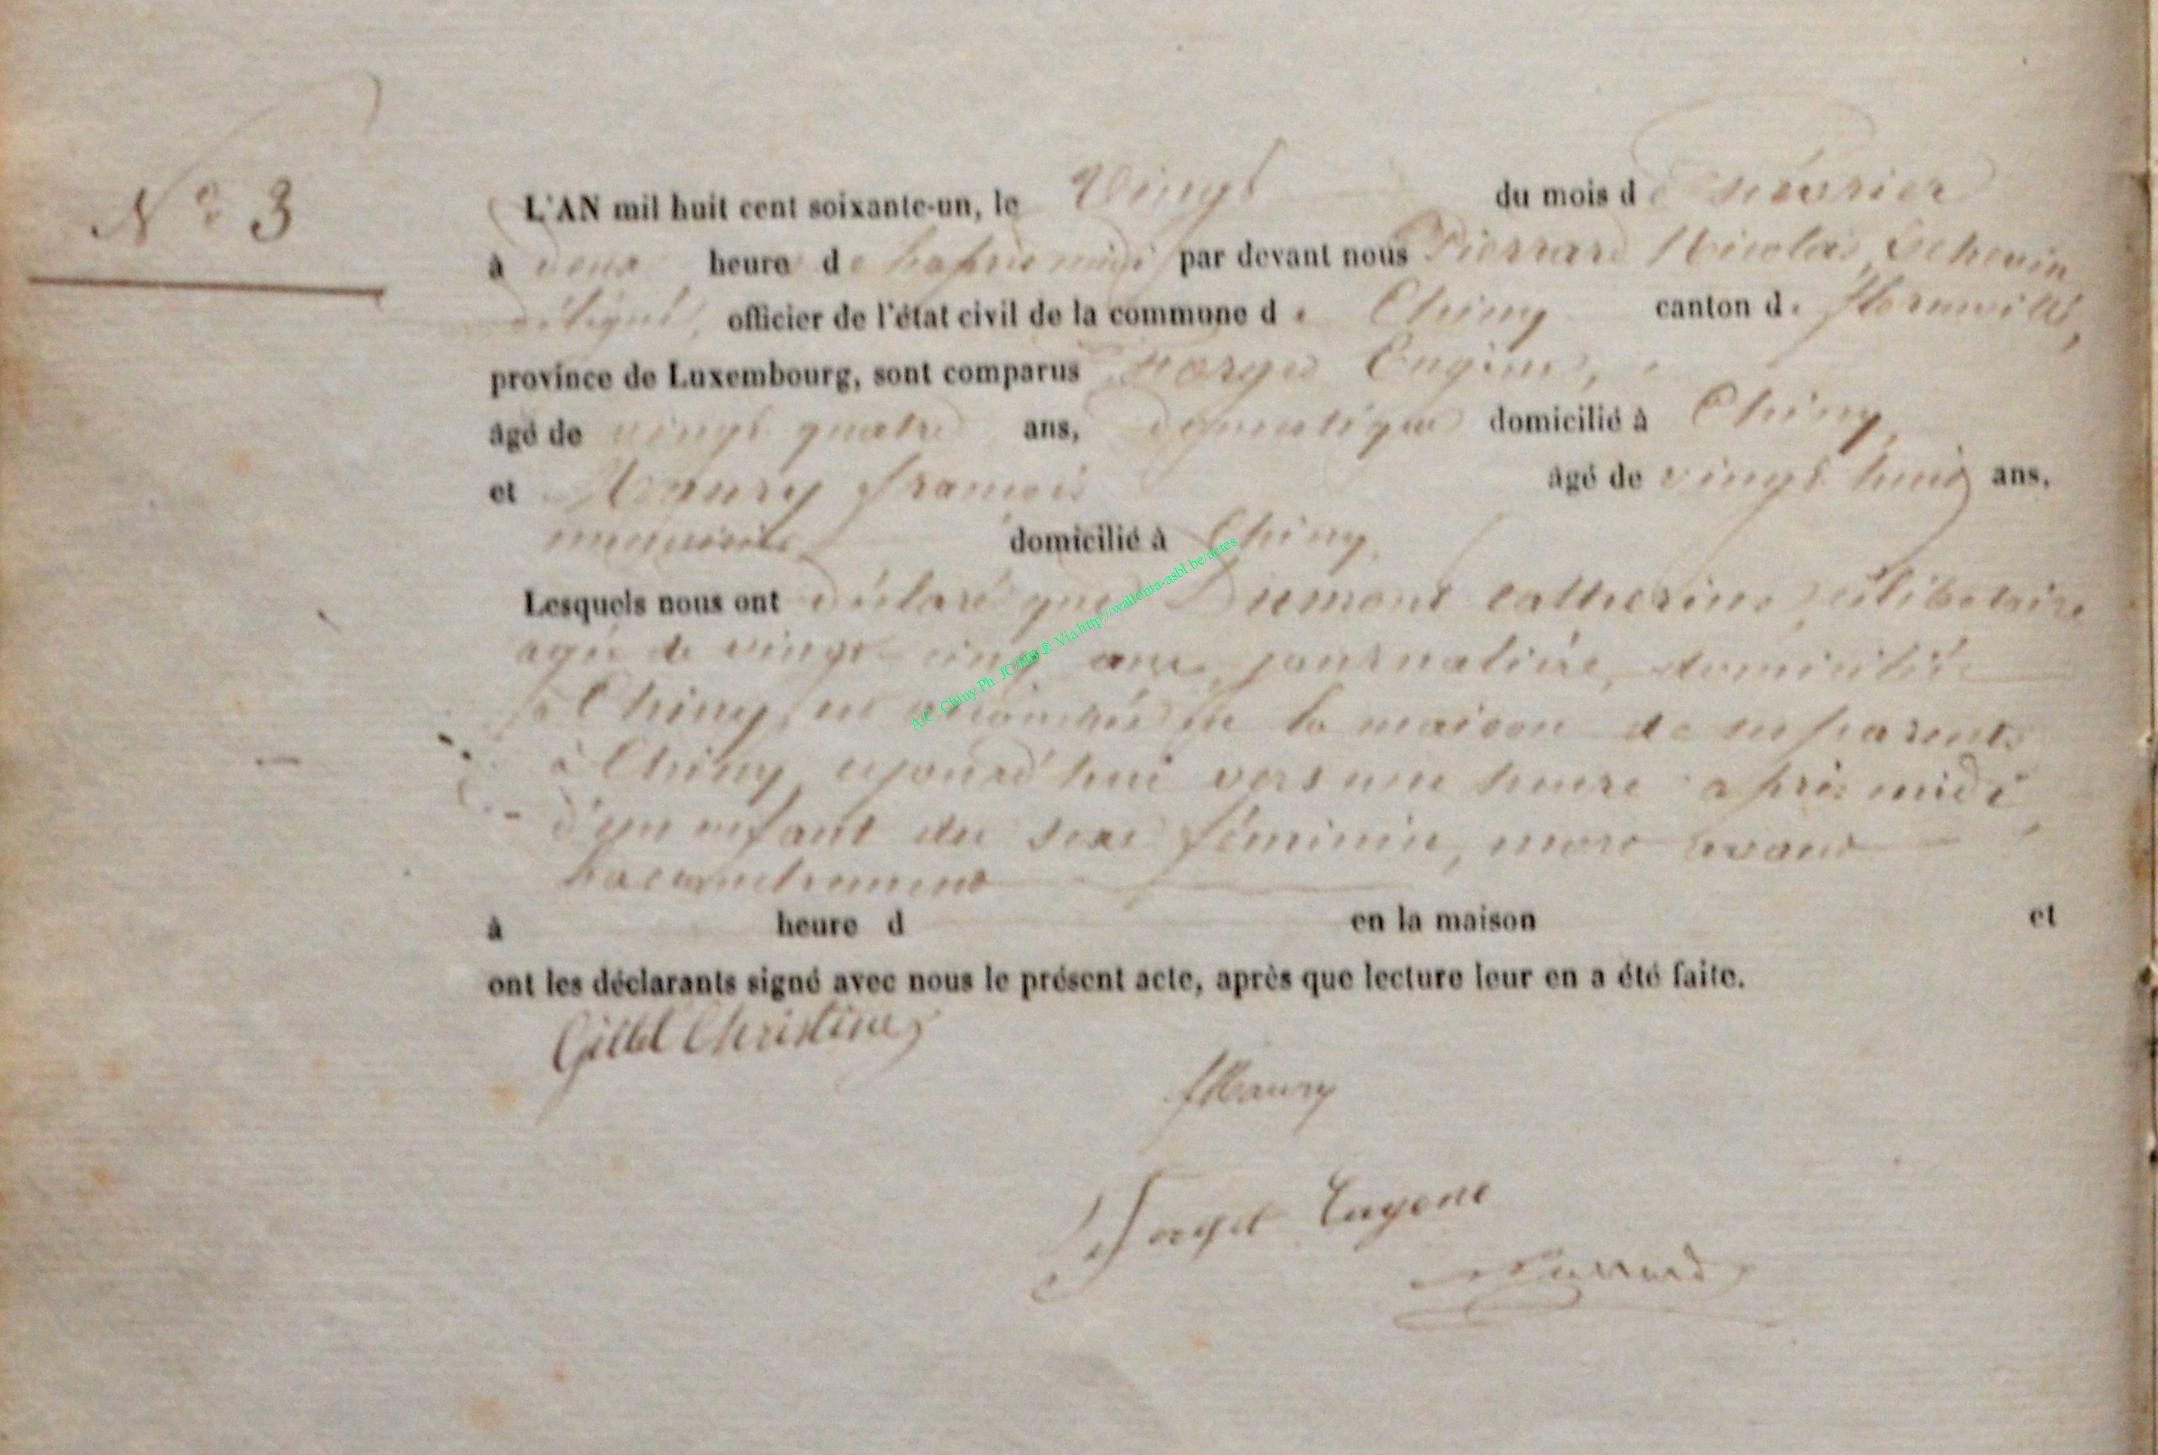 N° 3
L'AN mil huit cent soixante-un, le Vingt du mois de février
à deux heure de l'après midi par devant nous Pierrard Nicolas, Echevin
délégué, officier de l'état civil de la commune de Chiny canton de florenville,
province de Luxembourg, sont comparus Eugène,
âgé de vingt quatre ans, domestique domicilié à Chiny,
et Maury francois âgé de vingt huit ans,
domicilié à Chiny.
Lesquels nous ont déclaré que Dumont catherine, célibataire
agée de vingt cinq ans, journalière, domiciliée
à Chiny, est accouchée en la maison de ses parents
à Chiny, aujourd'hui vers une heure après midi
d'un enfant du sexe féminin, mort avant
l'accouchement
à heure d en la maison et
ont les déclarants signé avec nous le présent acte, après que lecture leur en a été faite.
Gillet Christine
fMaury
Eugene
Pierrard
A.C. Chiny Ph. JC HB & Via http://wallonia-asbl.be/actes